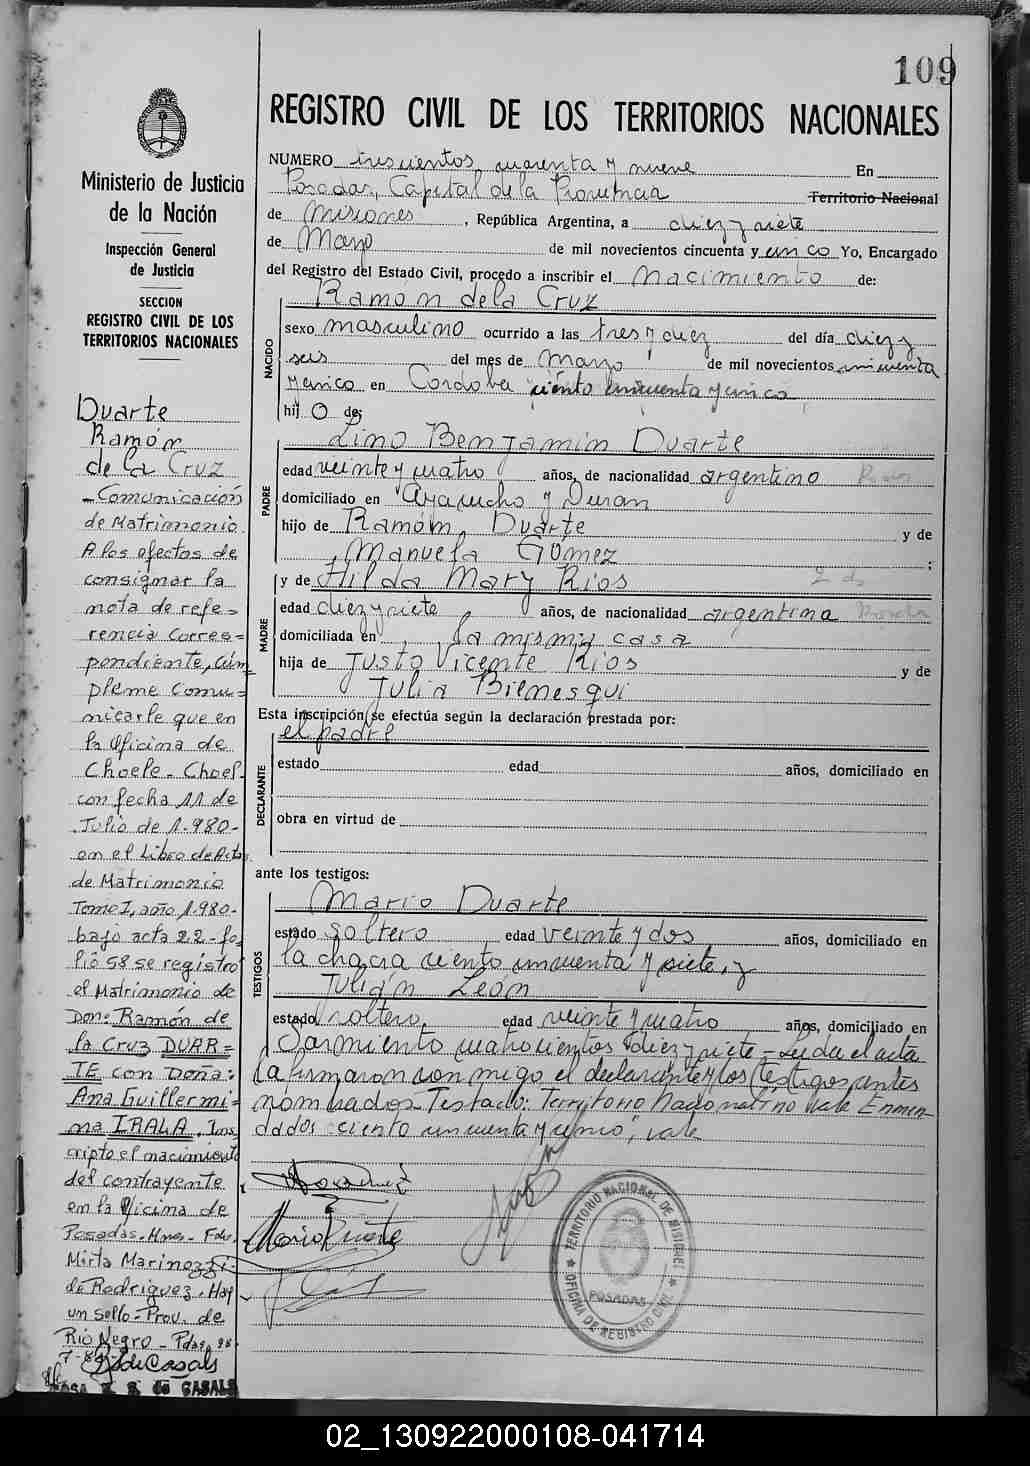 109
REGISTRO CIVIL DE LOS TERRITORIOS NACIONALES
Ministerio de Justicia
de la Nación
Inspección General
de Justicia
SECCION
REGISTRO CIVIL DE LOS
TERRITORIOS NACIONALES
NUMERO trescientos cuarenta y nueve En
Posadas, Capital de la Provincia Territorio Nacional
de Misiones, República Argentina, a diez y siete
de Mayo de mil novecientos cincuenta y cinco Yo, Encargado
del Registro del Estado Civil, procedo a inscribir el nacimiento de:
Ramón de la Cruz
NACIDO
sexo masculino ocurrido a las tres y diez del día diez y
seis del mes de Mayo de mil novecientos cincuenta
y cinco en Cordoba ciento cincuenta y cinco
hij O de:
Lino Benjamin Duarte
PADRE
edad veinte y cuatro años, de nacionalidad argentino
domiciliado en Ayacucho y Duran
hijo de Ramóm Duarte y de
Manuela Gómez;
y de Hilda Mary Rios
MADRE
edad diez y siete años, de nacionalidad argentina
domiciliada en la misma casa
hija de Justo Vicente Rios y de
Julia Bienesqui
Esta inscripción se efectúa según la declaración prestada por:
el padre
DECLARANTE
estado edad años, domiciliado en
obra en virtud de
ante los testigos:
Mario Duarte
TESTIGOS
estado soltero edad veinte y dos años, domiciliado en
la chacra ciento cincuenta y siete, y
Julián León
estado soltero, edad veinte y cuatro años, domiciliado en
Sarmiento cuatrocientos diez y siete - Leida el acta
la firmaron conmigo el declarante y los testigos antes
nombrados - Testado: Territorio Nacional: no vale Enmen-
dados: ciento cincuenta y cinco, vale
Mario Duarte
TERRITORIO NACIONAL DE MISIONES
POSADAS
OFICINA DE REGISTRO CIVIL
Duarte
Ramón
de la Cruz
- Comunicación
de Matrimonio.
A los efectos de
consignar la
nota de refe=
rencia corres=
pondiente, cúm
pleme comu=
nicarle que en
la Oficina de
Choele-Choel-
con fecha 11 de
Julio de 1.980-
en el Libro de Actas
de Matrimonio
Tomo I, año 1.980-
bajo acta 22-fo
lio 58 se registró
el Matrimonio de
Don: Ramón de
la Cruz DUAR=
TE con Doña:
Ana Guillermi=
na IRALA. Ins
cripto el nacimiento
del contrayente
en la Oficina de
Posadas. Mnes. Fdo.
Mirta Marinozzi
de Rodriguez. Hay
un sello-Prov. de
Rio Negro - Pdas,
de CASALS
02_130922000108-041714